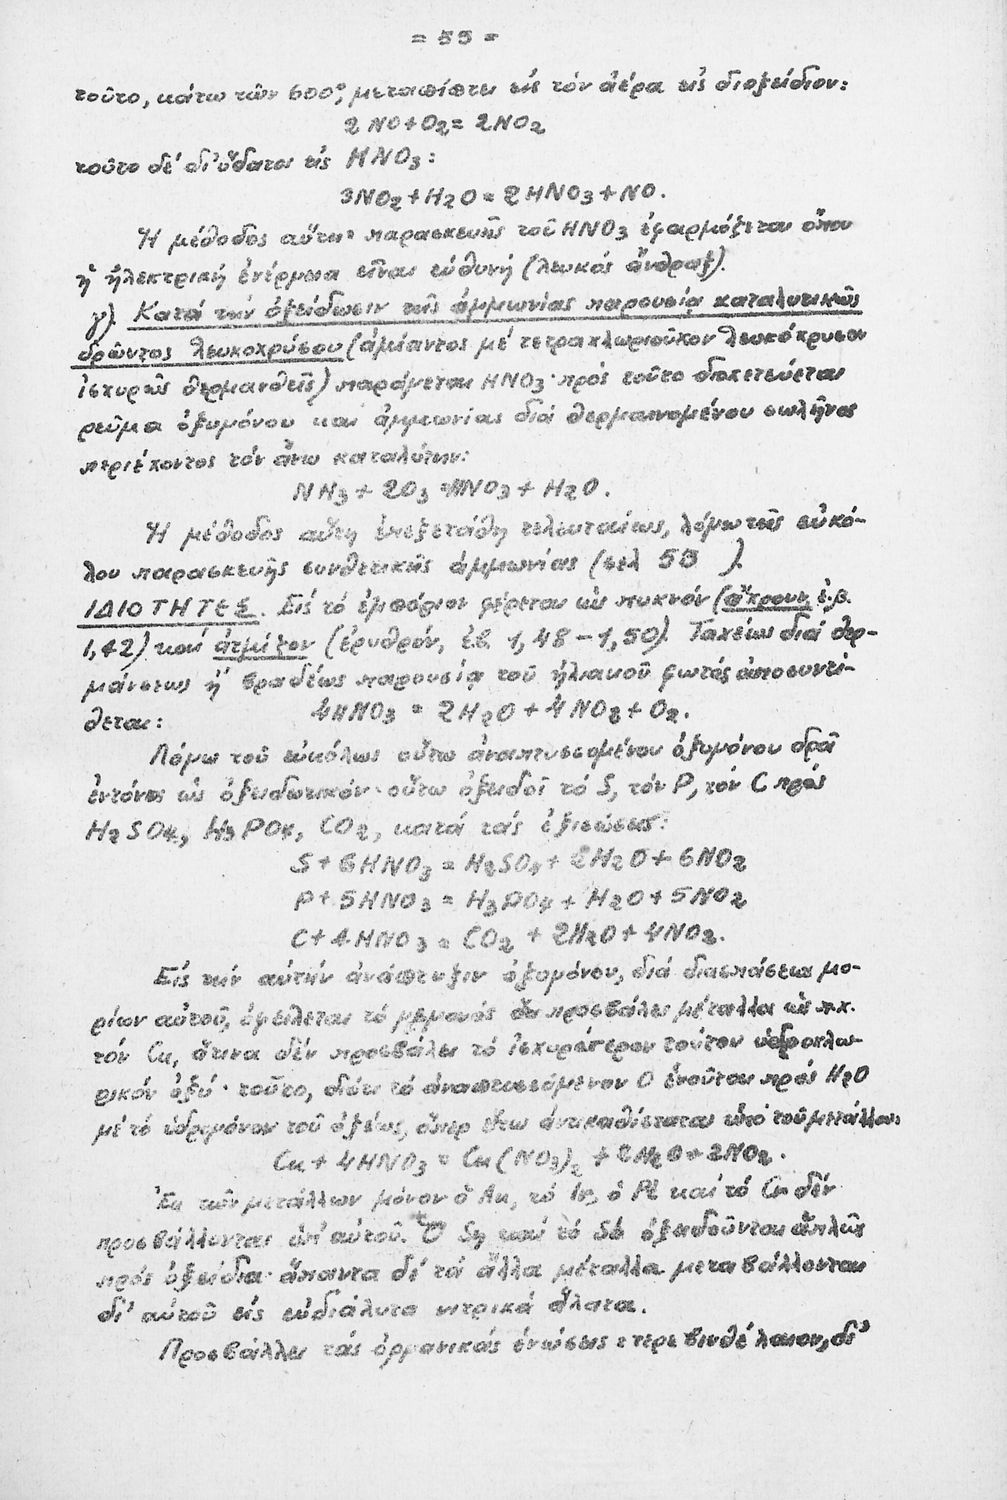 = 55 =
τοῦτο, κάτω τῶν 600°, μεταπίπτει εἰς τόν ἀέρα εἰς διοξείδιον:
2 NO+O₂= 2NO₂
τοῦτο δέ δι' ὕδατος εἰς HNO₃:
3NO₂+H₂O=2HNO₃+NO.
Ἡ μέθοδος αὕτη παρασκευῆς τοῦ HNO₃ ἐφαρμόζεται ὅπου
ἡ ἠλεκτρική ἐνέργεια εἶναι εὐθυνή (λευκός ἄνθραξ).
γ) Κατά τήν ὀξείδωσιν τῆς ἀμμωνίας παρουσίᾳ καταλυτικῶς
δρῶντος λευκοχρύσου (ἀμίαντος μέ τετραχλωριοῦχον λευκόχρυσον
ἰσχυρῶς θερμανθείς) παράγεται HNO₃· πρός τοῦτο διοχετεύεται
ρεῦμα ὀξυγόνου καί ἀμμωνίας διά θερμαινομένου σωλῆνος
περιέχοντος τόν ἄνω καταλύτην:
NH₃ + 2O₃ =HNO₃ + H₂O.
Ἡ μέθοδος αὕτη ἐπεξετάθη τελευταίως, λόγῳ τῆς εὐκό-
λου παρασκευῆς συνθετικῆς ἀμμωνίας (σελ 53 ).
ΙΔΙΟΤΗΤΕΣ. Εἰς τό ἐμπόριον φέρεται ὡς πυκνόν (ἄχρουν, ἐ.β.
1,42) καί ἀτμίζον (ἐρυθρόν, ἐ.β. 1,48-1,50). Ταχέως διά θερ-
μάνσεως ἤ βραδέως παρουσίᾳ τοῦ ἡλιακοῦ φωτός ἀποσυντί-
θεται: 4HNO₃ = 2H₂O + 4NO₂ + O₂.
Λόγῳ τοῦ εὐκόλως οὕτω ἀναπτυσσομένου ὀξυγόνου δρᾷ
ἐντόνως ὡς ὀξειδωτικόν· οὕτω ὀξειδοῖ τό S, τόν P, τόν C πρός
H₂SO₄, H₃PO₄, CO₂, κατά τάς ἐξισώσεις:
S + 6HNO₃ = H₂SO₄ + 2H₂O + 6NO₂
P + 5HNO₃ = H₃PO₄ + H₂O + 5NO₂
C + 4HNO₃ = CO₂ + 2H₂O + 4NO₂.
Εἰς τήν αὐτήν ἀνάπτυξιν ὀξυγόνου, διά διασπάσεως μο-
ρίων αὐτοῦ, ὀφείλεται τό γεγονός ὅτι προσβάλει μέταλλα ὡς π.χ.
τόν Cu, ἅτινα δέν προσβάλει τό ἰσχυρότερον τούτου ὑδροχλω-
ρικόν ὀξύ· τοῦτο, διότι τό ἀναπτυσσόμενον O ἑνοῦται πρός H₂O
μέ τό ὑδρογόνον τοῦ ὀξέως, ὅπερ οὕτω ἀντικαθίσταται ὑπό τοῦ μετάλλου
Cu + 4HNO₃ = Cu(NO₃)₂ + 2H₂O + 2NO₂.
Ἐκ τῶν μετάλλων μόνον ὁ Au, τό Ir, ὁ Pt καί τό Cr δέν
προσβάλλονται ὑπ' αὐτοῦ. Ὁ Sn καί τό Sb ὀξειδοῦνται ἁπλῶς
πρός ὀξείδια· ἅπαντα δέ τά ἄλλα μέταλλα μεταβάλλονται
δι' αὐτοῦ εἰς εὐδιάλυτα νιτρικά ἅλατα.
Προσβάλλει τάς ὀργανικάς ἑνώσεις τερεβινθέλαιον, δι'